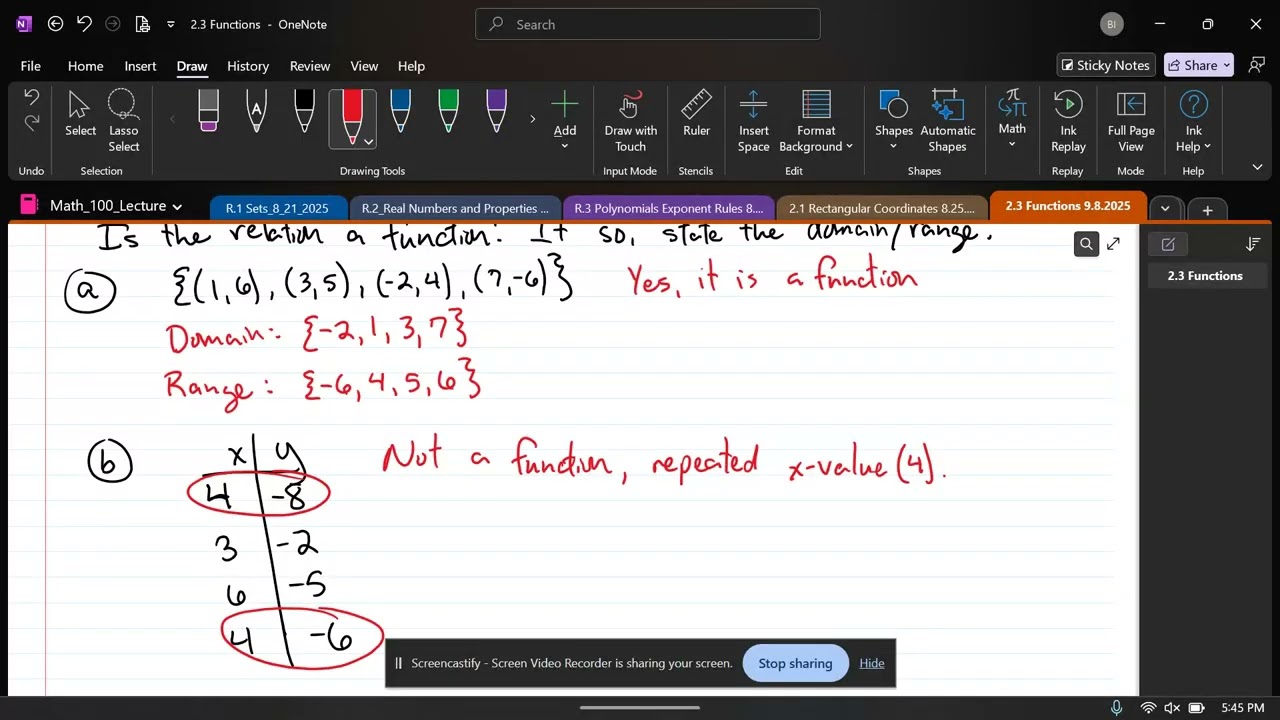 2.3 Functions - OneNote
Search
BI
File Home Insert Draw History Review View Help
Sticky Notes Share
Select Lasso Select
A
Add
Draw with Touch
Ruler
Insert Space
Format Background
Shapes
Automatic Shapes
Math
Ink Replay
Full Page View
Ink Help
Undo Selection Drawing Tools Input Mode Stencils Edit Shapes Replay Mode Help
Math_100_Lecture R.1 Sets_8_21_2025 R.2_Real Numbers and Properties ... R.3 Polynomials Exponent Rules 8.... 2.1 Rectangular Coordinates 8.25.... 2.3 Functions 9.8.2025
2.3 Functions
Is the relation a function. If so, state the domain/range.
a {(1,6), (3,5), (-2,4), (7,-6)} Yes, it is a function
Domain: {-2, 1, 3, 7}
Range: {-6, 4, 5, 6}
b x y Not a function, repeated x-value (4).
4 -8
3 -2
6 -5
4 -6
Screencastify - Screen Video Recorder is sharing your screen. Stop sharing Hide
5:45 PM